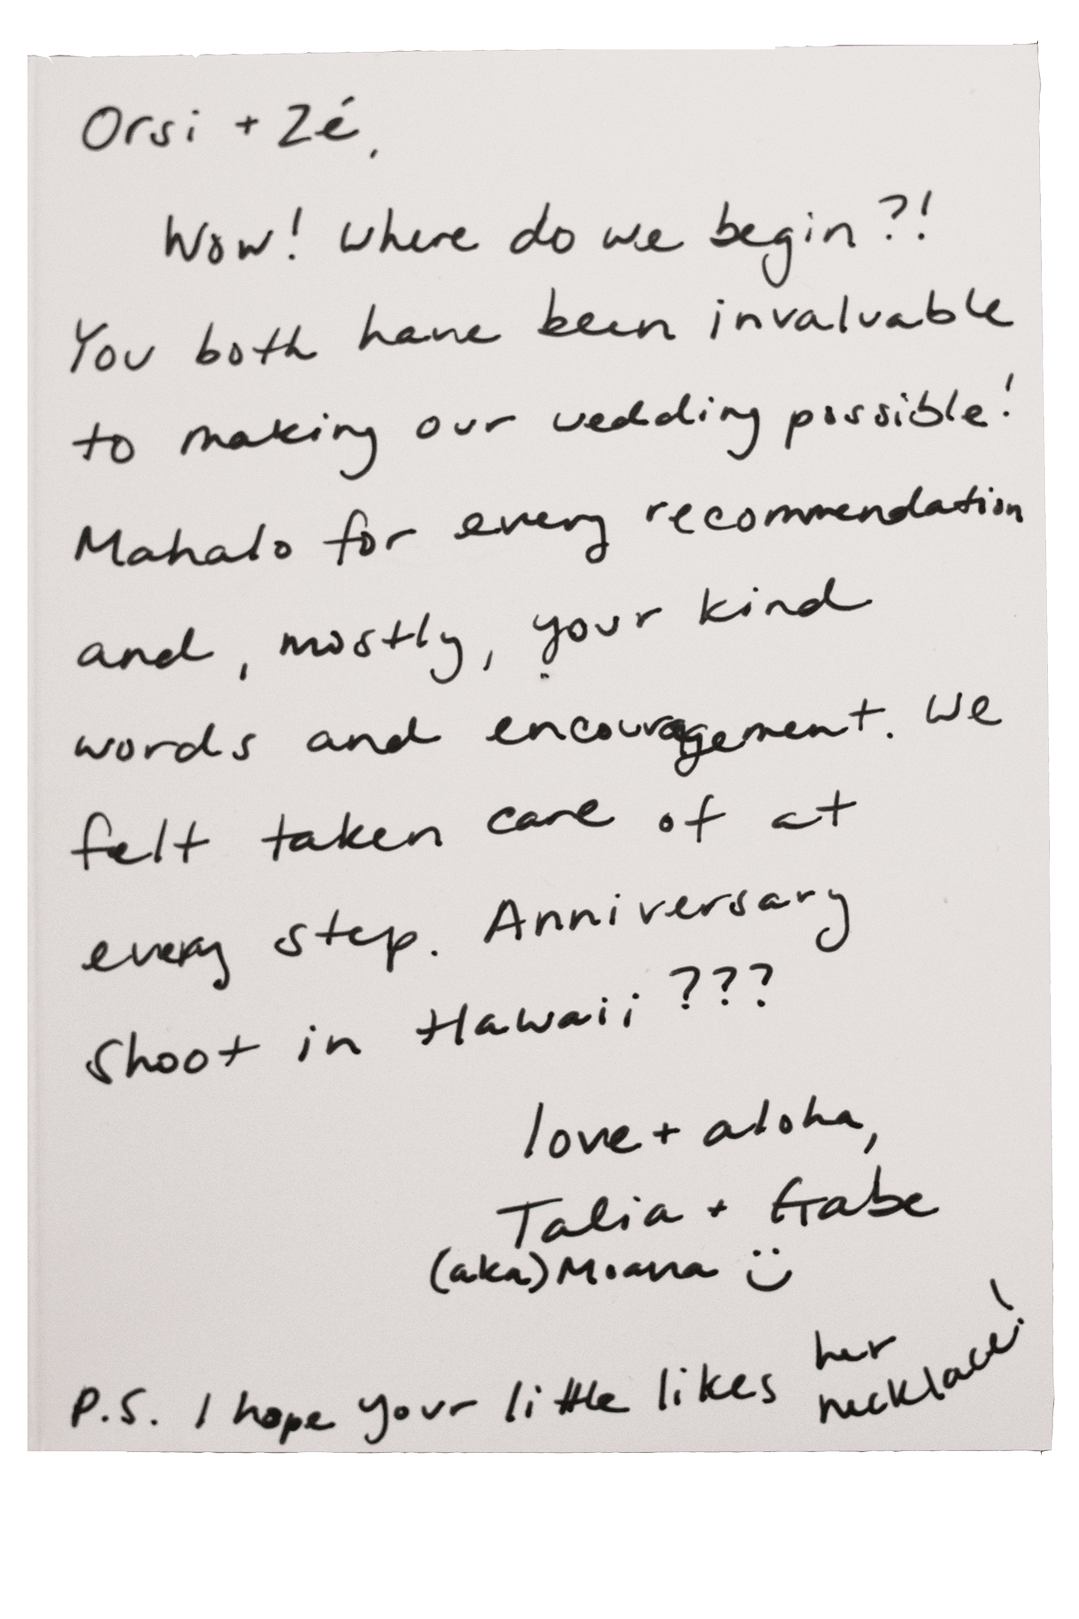 Orsi + Zé,
Wow! Where do we begin?!
You both have been invaluable
to making our wedding possible!
Mahalo for every recommendation
and, mostly, your kind
words and encouragement. We
felt taken care of at
every step. Anniversary
shoot in Hawaii ???
love + aloha,
Talia + Gabe
(aka) Moana ü
P.S. I hope your little likes her
necklace!